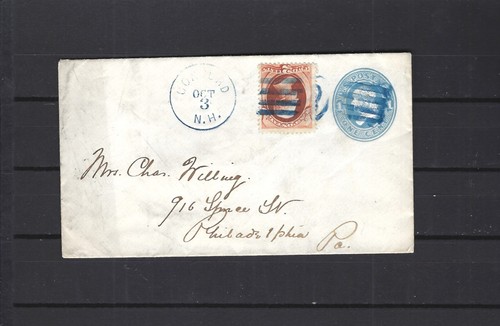 CONCORD
OCT
3
N.H.
ONE CENT
Mrs. Chas. Willing.
916 Spruce St.
Philadelphia Pa.